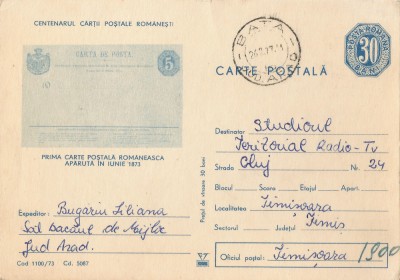 CENTENARUL CĂRȚII POȘTALE ROMÂNEȘTI
CARTA DE POSTA
5
PRIMA CARTE POȘTALĂ ROMÂNEASCA
APARUTĂ ÎN IUNIE 1873
Expeditor: Bugariu Liliana
Sat Bacăul de Mijloc
Jud Arad.
Cod 1100/73 Cd. 5087
Prețul de vînzare 30 bani
BATA
POSTA ROMANA
30
CARTE POȘTALĂ
Destinatar Studioul
Teritorial Radio-Tv
Strada Cluj Nr. 24
Blocul Scara Etajul Apart.
Localitatea Timisoara
Sectorul Județul Timiș
Oficiul poștal: Timisoara 1900